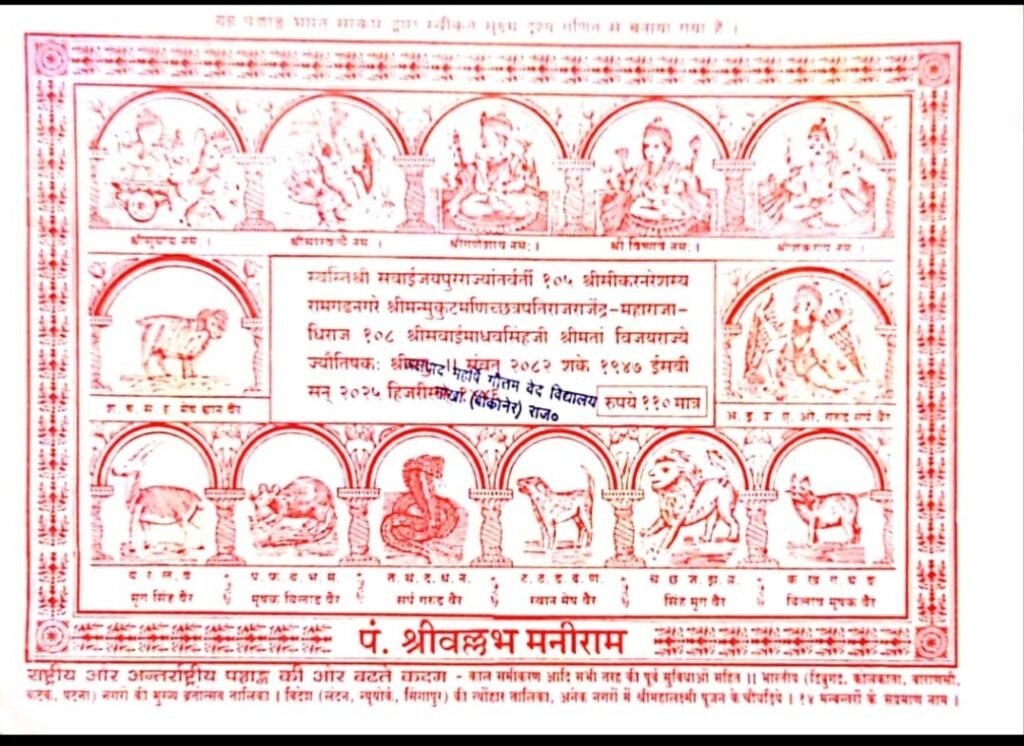 यह पञ्चाङ्ग भारत सरकार द्वारा स्वीकृत सूक्ष्म दृश्य गणित से बनाया गया है ।
श्रीसूर्याय नमः ।
श्रीगणेशाय नमः ।
श्री विष्णवे नमः ।
स्वस्तिश्री सवाईजयपुरराज्यांतर्वर्ती १०५ श्रीसीकरनरेशस्य
रामगढनगरे श्रीमन्मुकुटमणिच्छत्रपतिराजराजेंद्र-महाराजा-
धिराज १०८ श्रीसवाईमाधवसिंहजी श्रीमतां विजयराज्ये
ज्यौतिषकः ॥ संवत् २०८२ शके १९४७ ईसवी
सन् २०२५ हिजरी रुपये ११० मात्र
महर्षि गौतम वेद विद्यालय
(बीकानेर) राज०
श. ष. स. ह. मेष श्वान वैर
अ. इ. उ. ए. ओ. गरुड सर्प वैर
य र ल व
प. फ. ब. भ. म.
त. थ. द. ध. न.
ट. ठ. ड. ढ. ण.
च छ ज. झ. ञ.
क ख ग. घ ङ
मृग सिंह वैर
मूषक बिलाड वैर
सर्प गरुड वैर
स्वान मेष वैर
सिंह मृग वैर
बिलाव मूषक वैर
पं. श्रीवल्लभ मनीराम
राष्ट्रीय और अन्तर्राष्ट्रीय पञ्चाङ्ग की ओर बढते कदम - काल समीकरण आदि सभी तरह की पूर्व सुविधाओं सहित ॥ भारतीय (डिबुगढ, कोलकाता, वाराणसी,
कटक, पटना) नगरों की मुख्य व्रतोत्सव तालिका । विदेश (लंदन, न्यूयोर्क, सिंगापुर) की त्योंहार तालिका, अनेक नगरों में श्रीमहालक्ष्मी पूजन के चौघड़िये । १४ मन्वन्तरों के सप्रमाण नाम ।